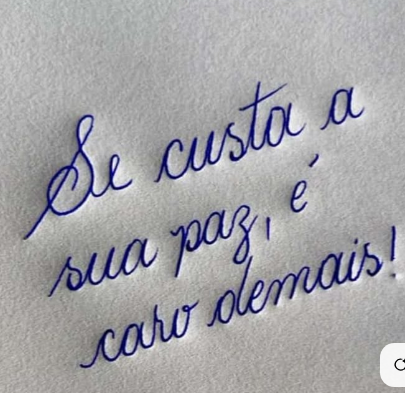 Se custa a
sua paz, é
caro demais!